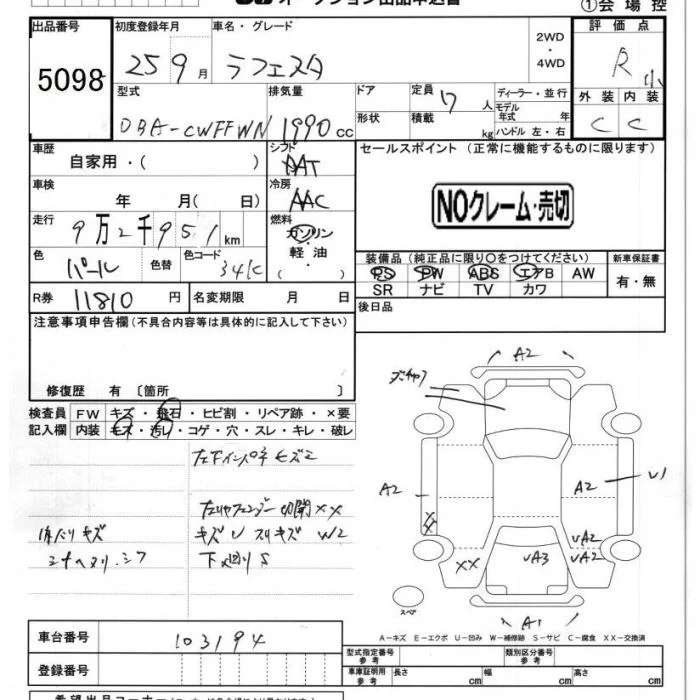 オークション出品申込書
①会場控
出品番号 初度登録年月 車名・グレード 2WD ・ 4WD 評価点
5098 25 9月 ラフェスタ R 小
型式 排気量 ドア 定員 7人 ディーラー・並行 外装 内装
DBA-CWFFWN 1990 cc 形状 積載 kg モデル年式 年 ハンドル 左・右 C C
車歴 自家用・( ) シフト AAT セールスポイント (正常に機能するものに限ります)
車検 年 月( 日) 冷房 AAC
NOクレーム・売切
走行 9万2千951km 燃料 ガソリン 軽油 ( )
色 パール 色替 色コード 34K
装備品 (純正品に限り○をつけてください) 新車保証書
PS PW ABS エアB AW 有・無
SR ナビ TV カワ
R券 11810円 名変期限 月 日 後日品
注意事項申告欄 (不具合内容等は具体的に記入して下さい)
修復歴 有 〔箇所 〕
検査員 FW キズ・飛石・ヒビ割・リペア跡・×要
記入欄 内装 キズ・汚レ・コゲ・穴・スレ・キレ・破レ
キズ
左リヤフェンダー切開XX
キズU スリキズ W2
下廻りS
A2
A2
A2
U1
XX
UA2
UA2
XX
UA3
A1
スペア
A-キズ E-エクボ U-凹み W-補修跡 S-サビ C-腐食 XX-交換済
車台番号 103194
型式指定番号 参考 類別区分番号 参考
登録番号
車庫証明用 参考 長さ cm 幅 cm 高さ cm
希望出品コーナー